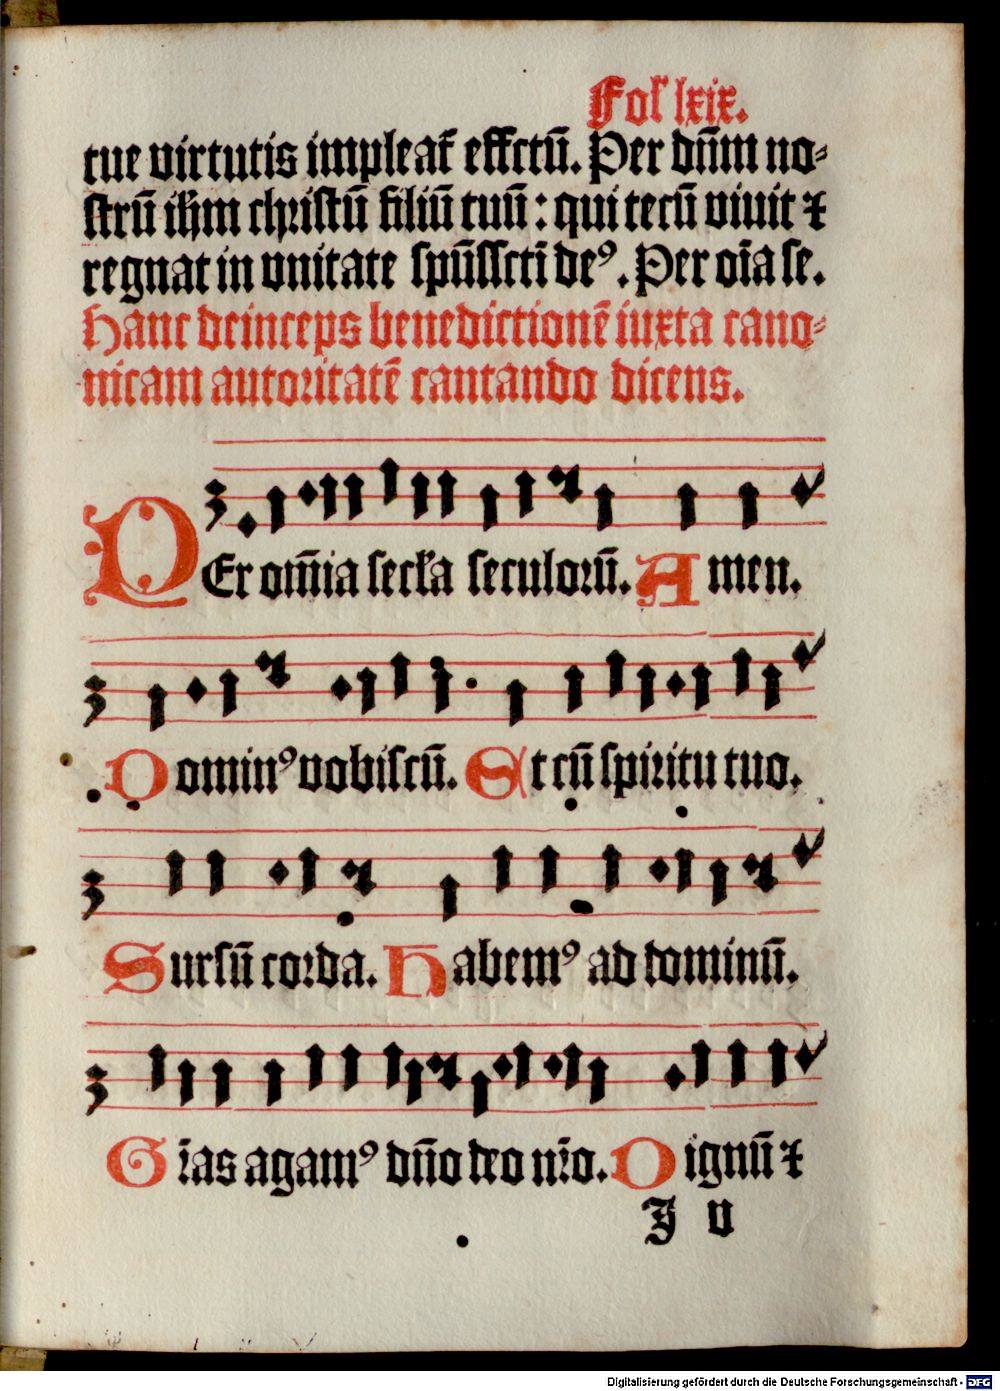 Fol̃ lxix.
tue virtutis impleat̃ effctũ. Per dñm no⸗
ſtrũ ihm chriſtũ filiũ tuũ: qui tecũ viuit ⁊
regnat in vnitate ſpũſſcti deꝰ. Per oĩa ſe.
Hanc deinceps benedictionẽ iuxta cano⸗
nicam autoritatẽ cantando dicens.
PEr om̃ia ſecl̃a ſeculoꝛũ. Amen.
Dominꝰ vobiſcũ. Et cũ ſpiritu tuo.
Surſũ coꝛda. Habemꝰ ad dominũ.
Gr̃as agamꝰ dño deo nr̃o. Dignũ ⁊
J v
Digitalisierung gefördert durch die Deutsche Forschungsgemeinschaft - DFG